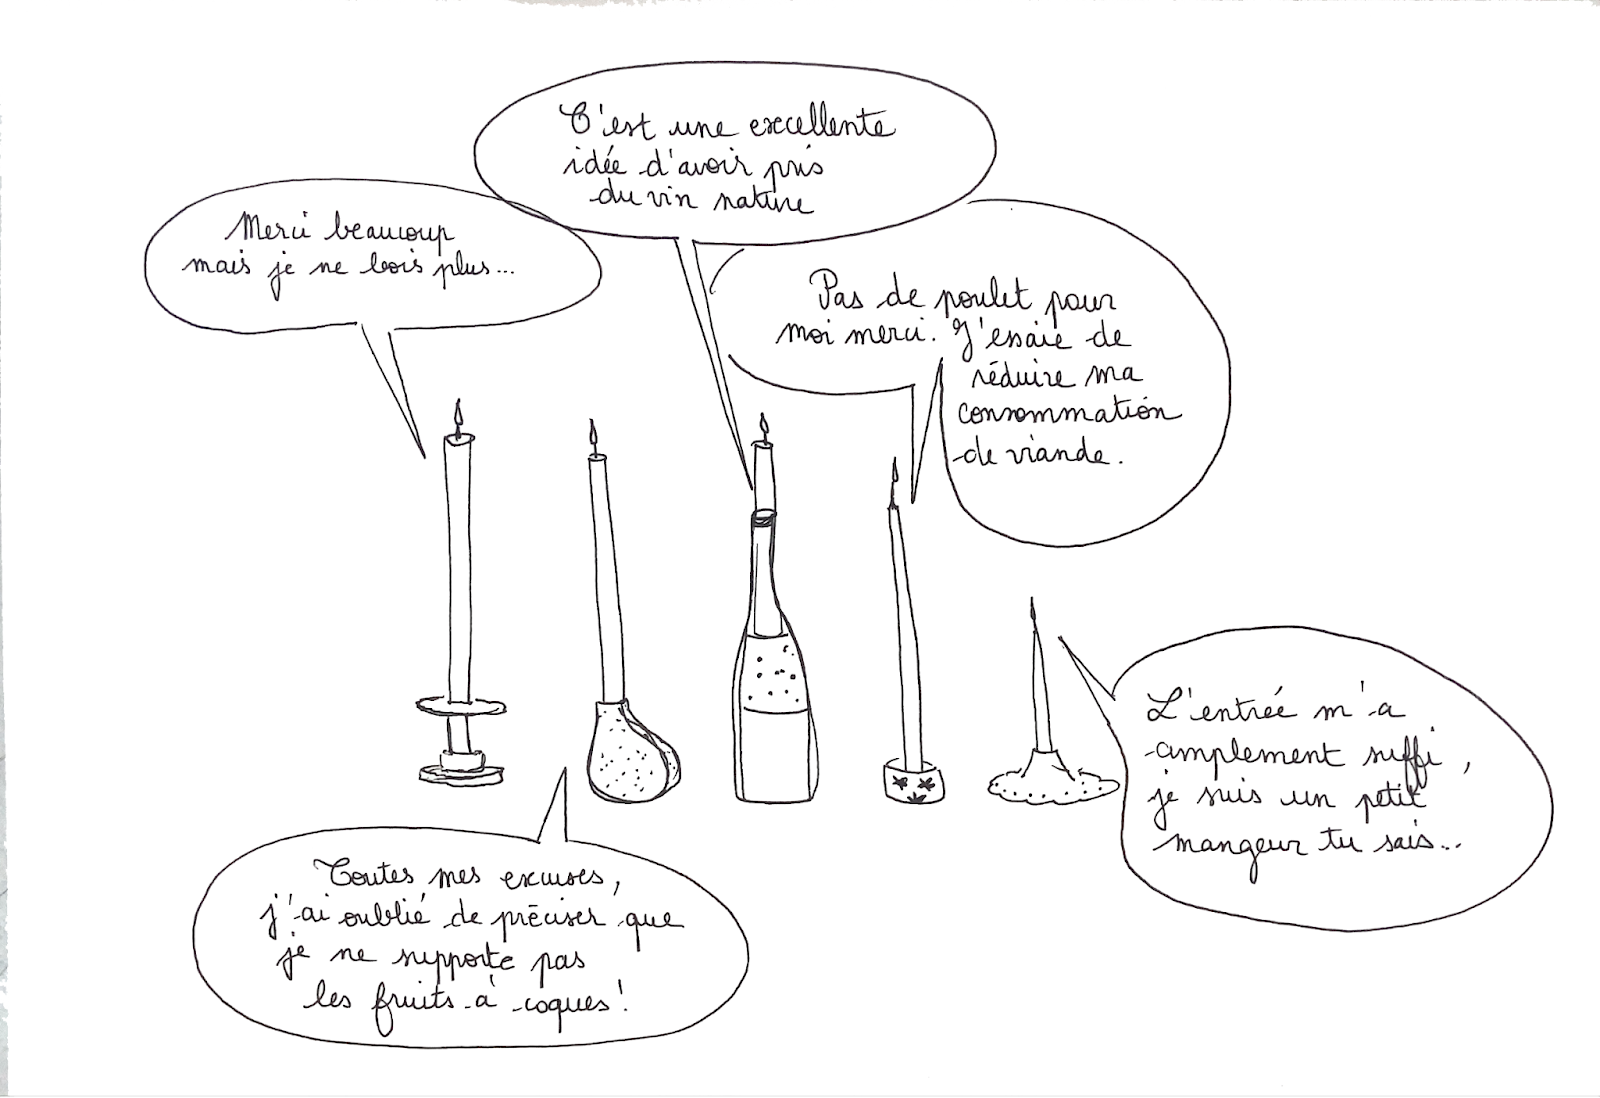 C'est une excellente
idée d'avoir pris
du vin nature
Merci beaucoup
mais je ne bois plus...
Pas de poulet pour
moi merci. J'essaie de
réduire ma
consommation
de viande.
L'entrée m'a
amplement suffi,
je suis un petit
mangeur tu sais...
Toutes mes excuses,
j'ai oublié de préciser que
je ne supporte pas
les fruits à coques!